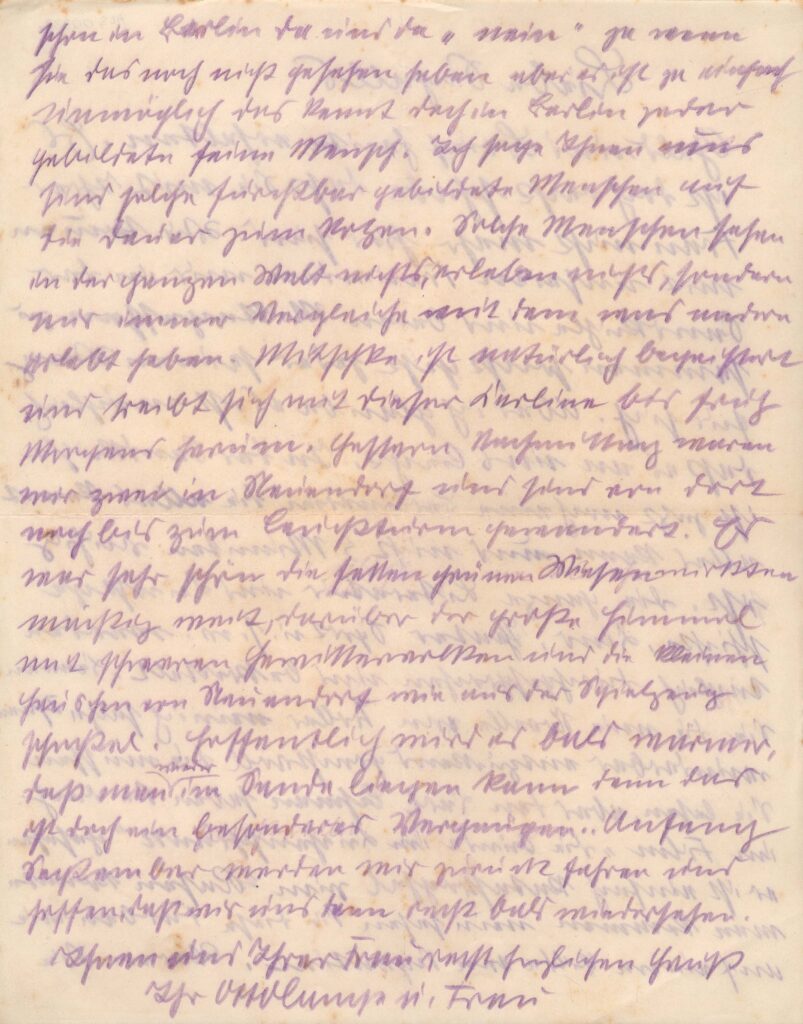 schon in Berlin da und da „ nein " ja wenn
Sie das noch nicht gesehen haben aber es ist ja einfach
unmöglich das kennt doch in Berlin jeder
gebildete feine Mensch. Ich sage Ihnen uns
sind solche furchtbar gebildete Menschen auf
die Dauer zum Kotzen. Solche Menschen sehen
in der ganzen Welt nichts, erleben nichts, sondern
nur immer Vergleiche mit dem was andere
erlebt haben. Mitschke ist natürlich begeistert
und treibt sich mit dieser Karline bis früh
Morgens herum. Gestern Nachmittag waren
wir zwei in Neuendorf und sind von dort
noch bis zum Leuchtturm gewandert. Es
war sehr schön die satten grünen Wiesen wirkten
mächtig weit, darüber der große Himmel
mit schweren Gewitterwolken und die kleinen
Häuschen von Neuendorf wie aus der Spielzeug
schachtel. Hoffentlich wird es bald warmer,
daß man wieder im Sande liegen kann denn das
ist doch ein besonderes Vergnügen.. Anfang
September werden wir zurück fahren und
hoffen, daß wir uns dann recht bald wiedersehen.
Ihnen und Ihrer Frau recht herzlichen Gruß
Ihr Otto u. Frau